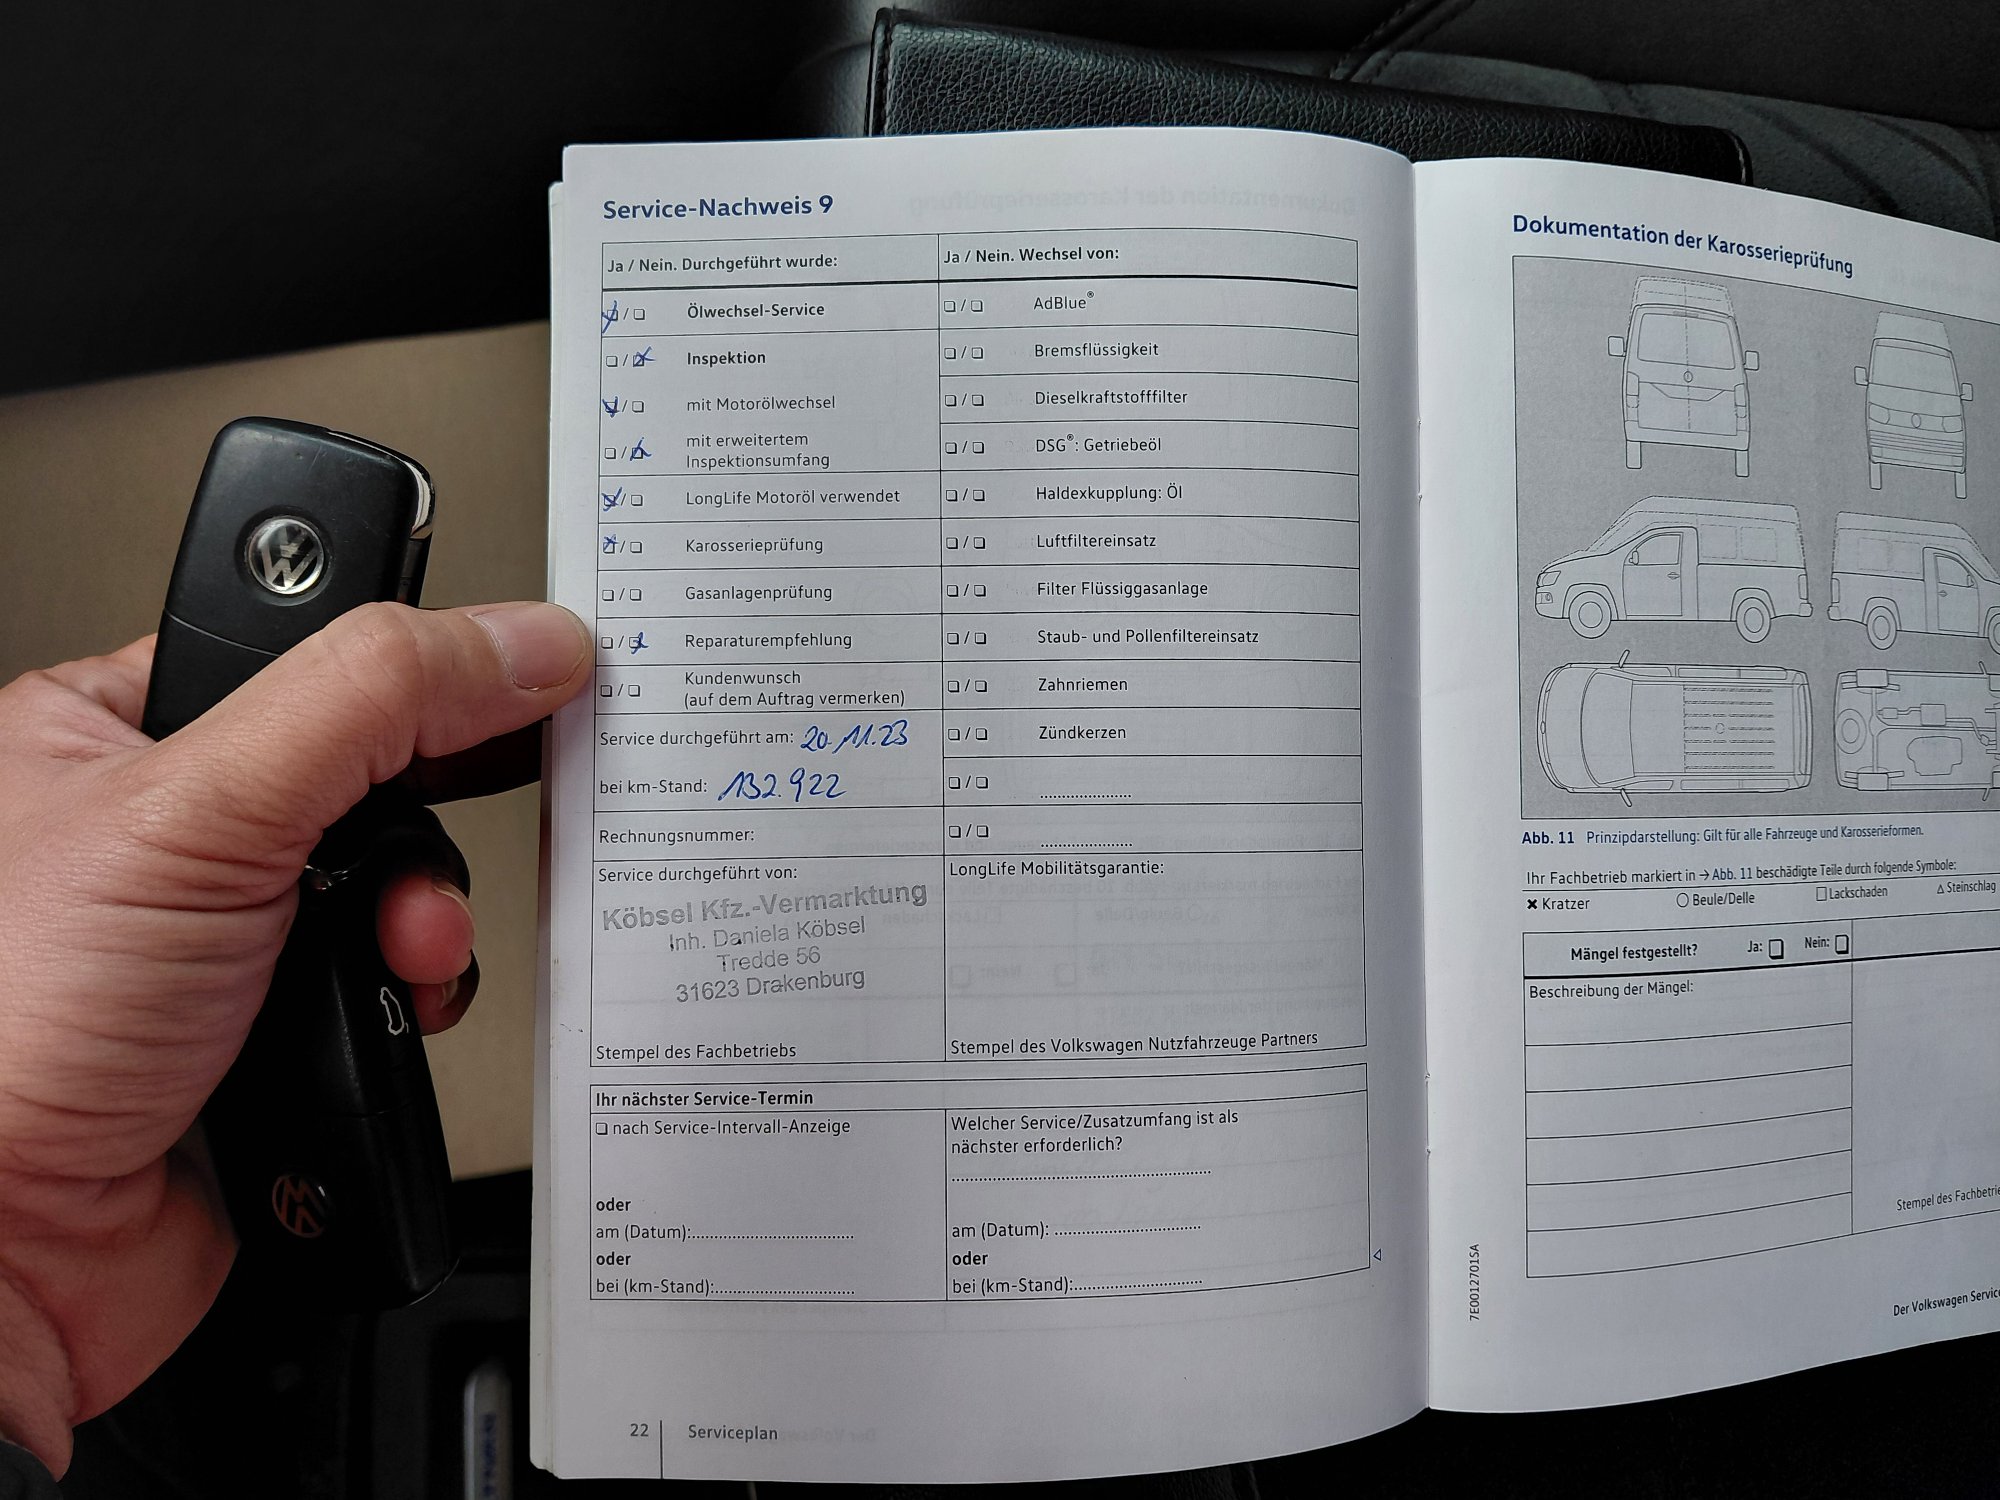 Service-Nachweis 9
Ja / Nein. Durchgeführt wurde:
Ölwechsel-Service
Inspektion
mit Motorölwechsel
mit erweitertem
Inspektionsumfang
LongLife Motoröl verwendet
Karosserieprüfung
Gasanlagenprüfung
Reparaturempfehlung
Kundenwunsch
(auf dem Auftrag vermerken)
Service durchgeführt am: 20.11.23
bei km-Stand: 132.922
Rechnungsnummer:
Service durchgeführt von:
Köbsel Kfz.-Vermarktung
Inh. Daniela Köbsel
Tredde 56
31623 Drakenburg
Stempel des Fachbetriebs
Ja / Nein. Wechsel von:
AdBlue®
Bremsflüssigkeit
Dieselkraftstofffilter
DSG®: Getriebeöl
Haldexkupplung: Öl
Luftfiltereinsatz
Filter Flüssiggasanlage
Staub- und Pollenfiltereinsatz
Zahnriemen
Zündkerzen
LongLife Mobilitätsgarantie:
Stempel des Volkswagen Nutzfahrzeuge Partners
Ihr nächster Service-Termin
nach Service-Intervall-Anzeige
oder
am (Datum):
oder
bei (km-Stand):
Welcher Service/Zusatzumfang ist als
nächster erforderlich?
am (Datum):
oder
bei (km-Stand):
22 Serviceplan
Dokumentation der Karosserieprüfung
Abb. 11 Prinzipdarstellung: Gilt für alle Fahrzeuge und Karosserieformen.
Ihr Fachbetrieb markiert in → Abb. 11 beschädigte Teile durch folgende Symbole:
Kratzer Beule/Delle Lackschaden Steinschlag
Mängel festgestellt? Ja: Nein:
Beschreibung der Mängel:
Stempel des Fachbetrie
7E0012701SA
Der Volkswagen Service